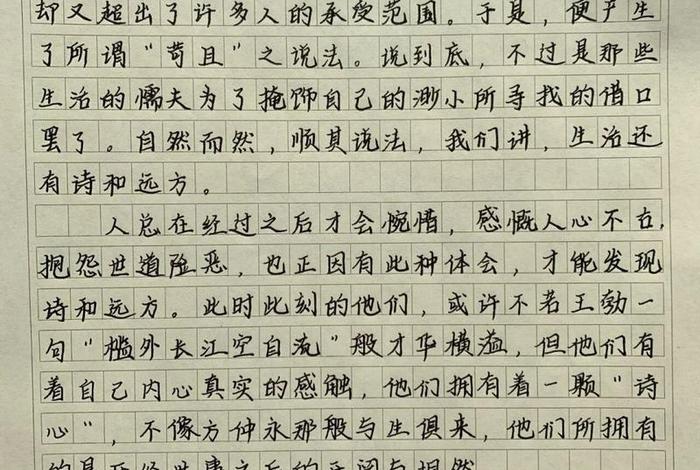 却又超出了许多人的承受范围。于是，便产生
了所谓“苟且”之说法。说到底，不过是那些
生活的懦夫为了掩饰自己的渺小所寻找的借口
罢了。自然而然，顺其说法，我们讲，生活还
有诗和远方。
人总在经过之后才会惋惜，感慨人心不古，
抱怨世道险恶，也正因有此种体会，才能发现
诗和远方。此时此刻的他们，或许不若王勃一
句“槛外长江空自流”般才华横溢，但他们有
着自己内心真实的感触，他们拥有着一颗“诗
心”，不像方仲永那般与生俱来，他们所拥有
的是历经世事之后的